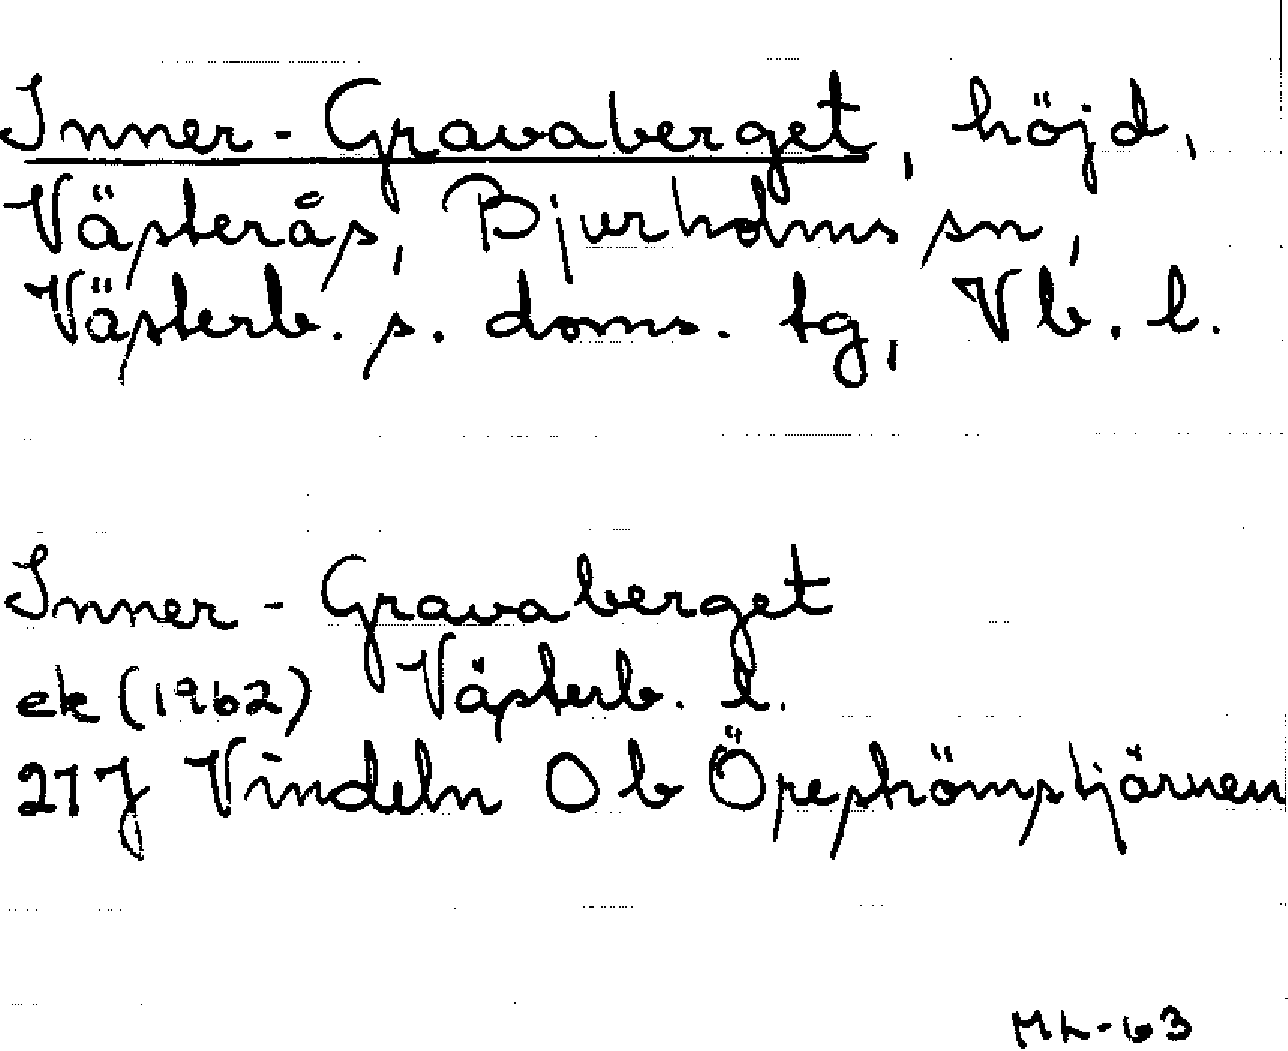 Inner-Gravaberget, höjd,
Västerås, Bjurholms sn,
Västerb. s. doms. tg, Vb. l.
Inner-Gravaberget
ek (1962) Västerb. l.
21J Vindeln Ob
ML-63